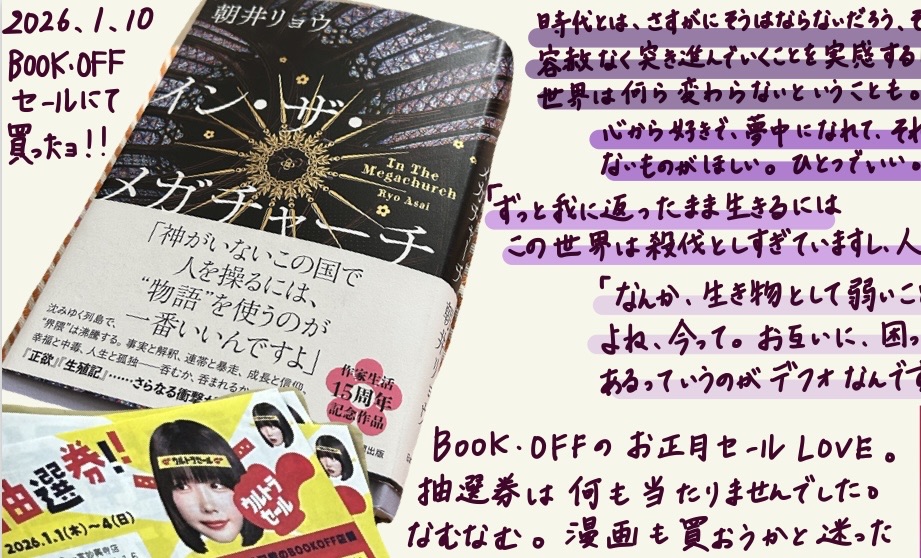 2026.1.10
BOOK・OFF
セールにて
買ったョ!!
朝井リョウ
イン・ザ・
メガチャーチ
In The
Megachurch
Ryo Asai
「神がいないこの国で
人を操るには、
“物語”を使うのが
一番いいんですよ」
沈みゆく列島で、
“界隈”は沸騰する。事実と解釈、連帯と暴走、成長と信仰、
幸福と中毒、人生と孤独――呑むか、呑まれるか
『正欲』『生殖記』……さらなる衝撃
作家生活
15周年
記念作品
抽選券!!
ウルトラセール
ウルトラ
セール
2026.1.1(木)〜4(日)
のBOOKOFF店舗
時代とは、さすがにそうはならないだろう、
容赦なく突き進んでいくことを実感する
世界は何ら変わらないということも。
心から好きで、夢中になれて、それ
ないものがほしい。ひとつでいい。
「ずっと我に返ったまま生きるには
この世界は殺伐としすぎていますし、人
「なんか、生き物として弱いこ
よね、今って。お互いに、困っ
あるっていうのがデフォなんです
BOOK・OFFのお正月セールLOVE。
抽選券は何も当たりませんでした。
なむなむ。漫画も買おうかと迷った